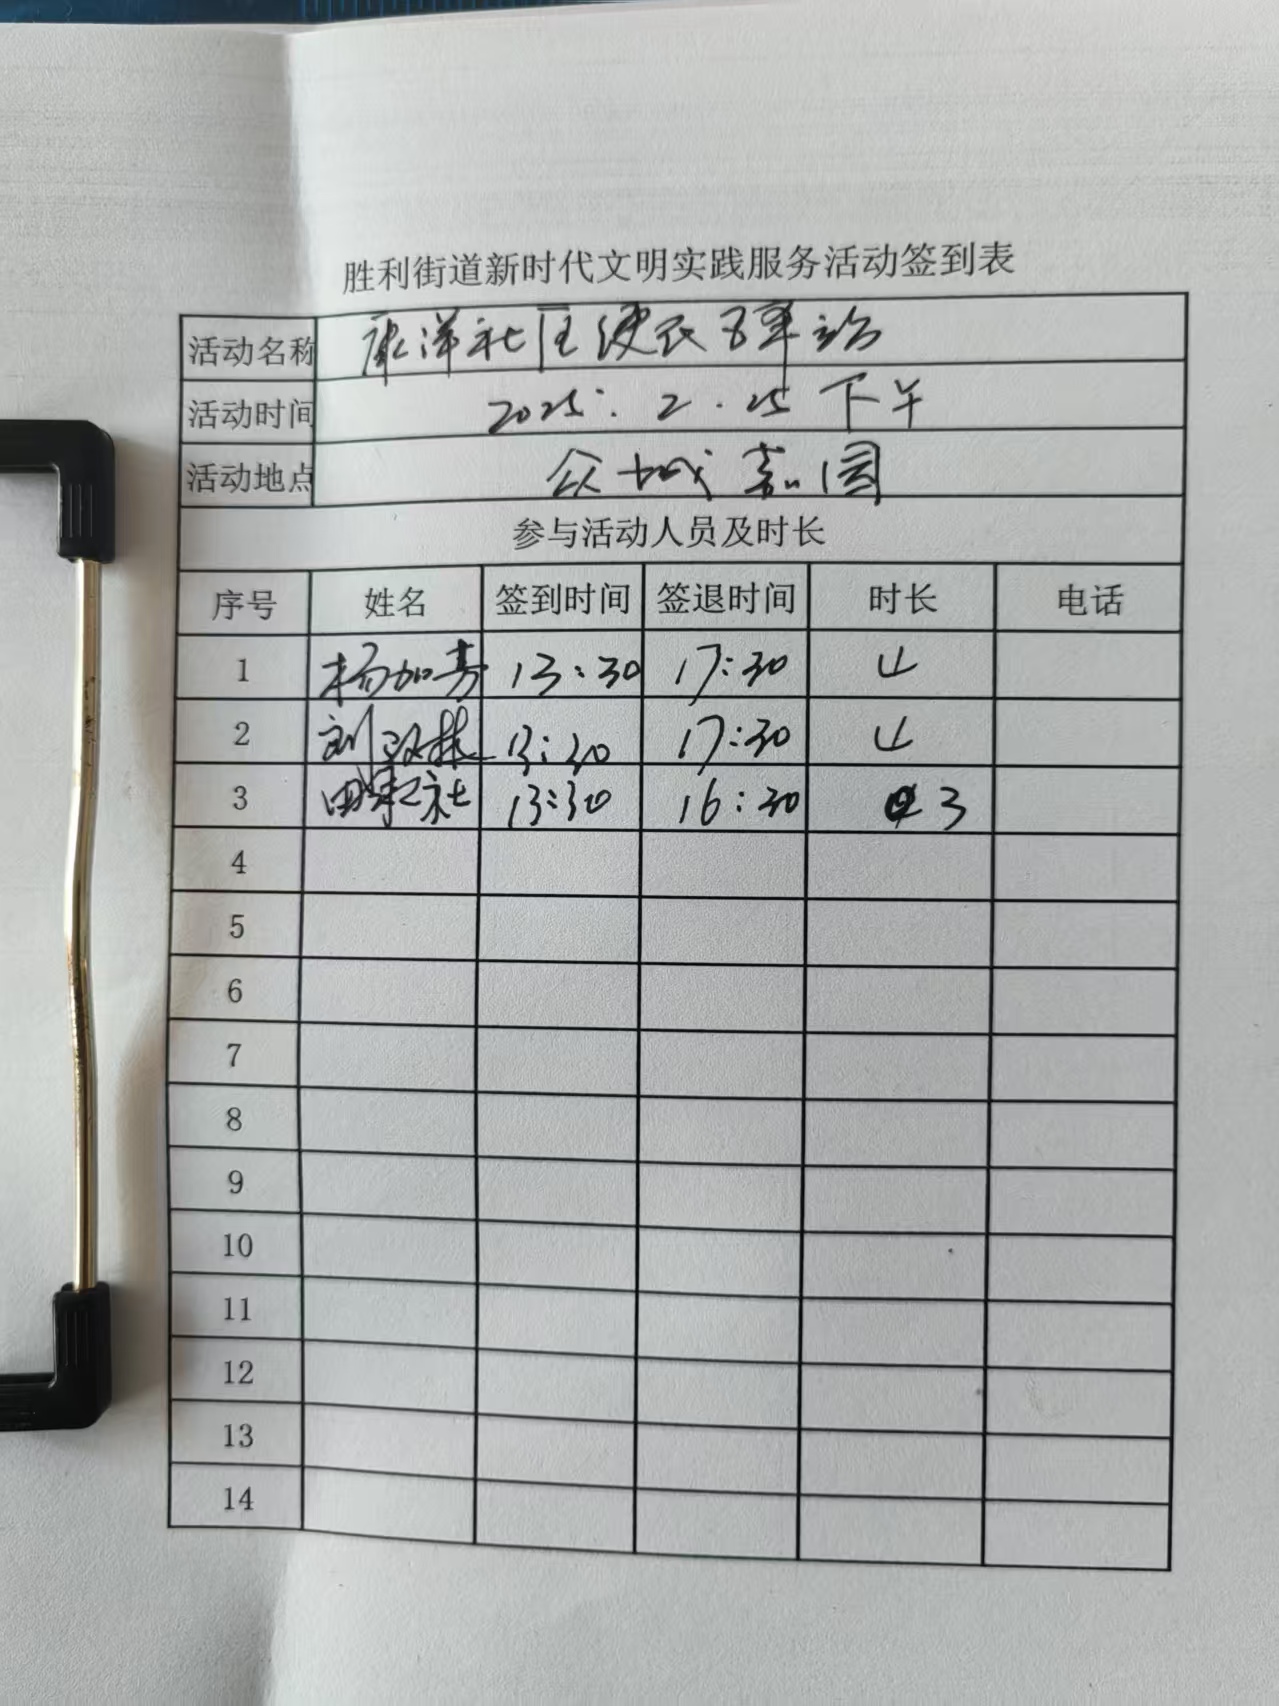 胜利街道新时代文明实践服务活动签到表
活动名称 康洋社区便民驿站
活动时间 2025.2.25 下午
活动地点 众城嘉园
参与活动人员及时长
序号 姓名 签到时间 签退时间 时长 电话
1 杨加寿 13:30 17:30 4
2 刘政林 13:30 17:30 4
3 田 社 13:30 16:30 3
4
5
6
7
8
9
10
11
12
13
14